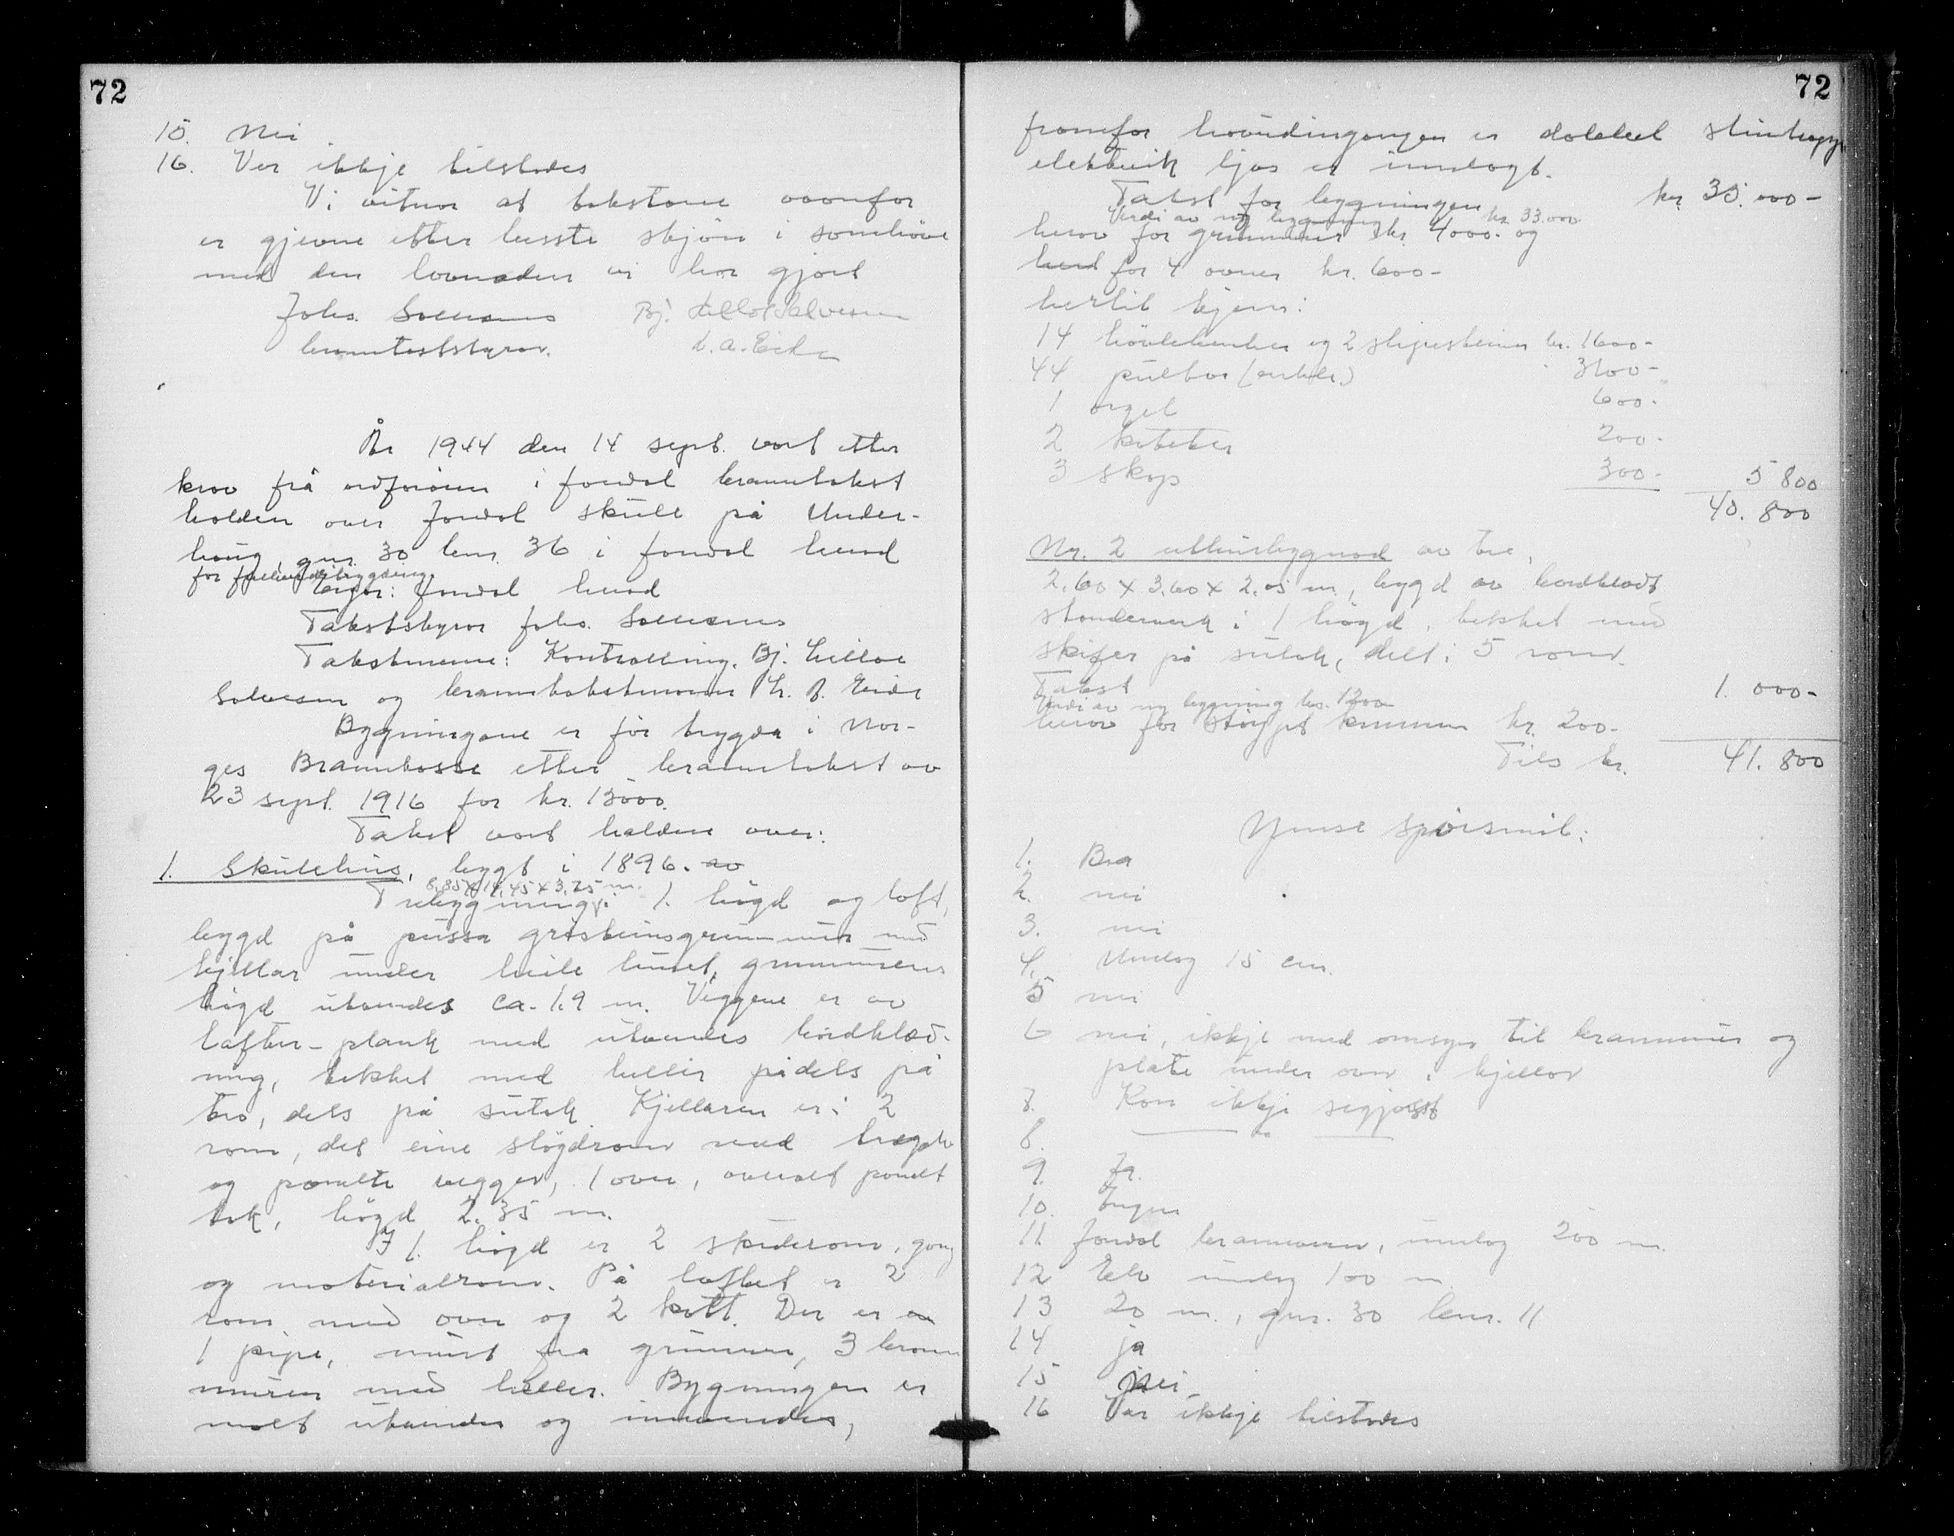 72
15. Nei
16. Var ikkje tilstades
Vi vitnar at takstane ovanfor
er gjevne etter beste skjøn i samhøve
med den lovnaden vi har gjort
Johs. Solheims Bj.
branntakststyrar.
År 1944 den 14 sept. vart etter
krav frå ordføraren i Jondal branntakst
halden over Jondal skule på Under-
haug, gnr. 30 bnr. 36 i Jondal herad
for
Eigar: Jondal herad
Takststyrar Johs. Solheims
Takstmenn: Kontrolling. Bj. Lilloe
Salvesen og branntakstmann L. A. Eide
Bygningane er før trygda i Nor-
ges Brannkasse etter branntakst av
23 sept. 1916 for kr. 13000.
Takst vart halden over:
1. Skulehus, bygt i 1896. av
8,85 x 14,45 x 3,75 m.
Trebygning i 1. høgd og loft,
bygd på pussa gråsteinsgrunnmur med
kjellar under heile huset, grunnmurens
høgd utvendes ca. 1.9 m. Veggene er av
lafta plank med utvendes bordklæd-
ning, tekket med heller på dels på
tro, dels på sutak. Kjellaren er i 2
rom, det eine sløydrom med tregolv
og panelte vegger, 1 ovn, overalt panelt
tak, høgd 2.35 m.
I 1. høgd er 2 skulerom, gang
og materialrom. På loftet er 2
rom med ovn og 2 kott. Der er en
1 pipe, murt fra grunnen, 3 brann
murer med heller. Bygningen er
malt utvendes og innvendes,
72
framfor hovudinngangen er dobbel steintrapp
elektrisk ljos er innlagt.
Takst for bygningen kr. 35.000-
Verdi av ny bygning kr. 33.000
herav for grunnmur kr. 4000.- og
herd for 4 ovner kr. 600-
hertil kjem:
14 høvlebenker og 2 slipesteiner kr. 1600-
44 pultar (enkle.) 3100-
1 orgel 600.
2 kateter 200-
3 skap 300- 5 800
40.800
Nr. 2 uthusbygnad av tre,
2.60 x 3.60 x 2.05 m, bygd av bordkledt
standerverk i 1 høgd, tekket med
skifer på sutak, delt i 5 rom.
Takst 1.000-
Verdi av ny bygning kr. 1200-
herav for støypt kummer kr. 200-
Tils kr. 41.800
Ymse spørsmål:
1. Bra
2. nei
3. nei
4. Umlag 15 cm.
5 nei
6 nei, ikkje med omsyn til brannmur og
plate under ovn i kjellar
7. Kan ikkje segjast
8.
9. Ja.
10. Ingen
11 Jondal brannvern, umlag 200 m.
12 Elv umlag 100 m
13 20 m., gnr. 30 bnr. 11
14 ja
15 nei
16 Var ikkje tilstades